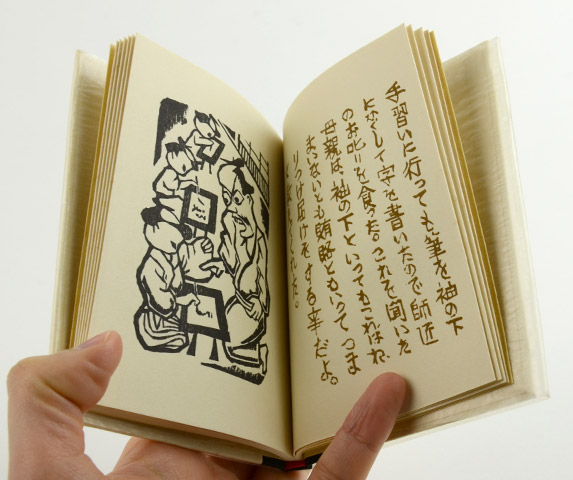 手習いに行っても、筆を袖の下
にかくして字を書いたので師匠
のお叱りを食った。これを聞いた
母親は、袖の下といってもこれはね、
まいないとも賄賂ともいってつま
りつけ届けをする事だよ。